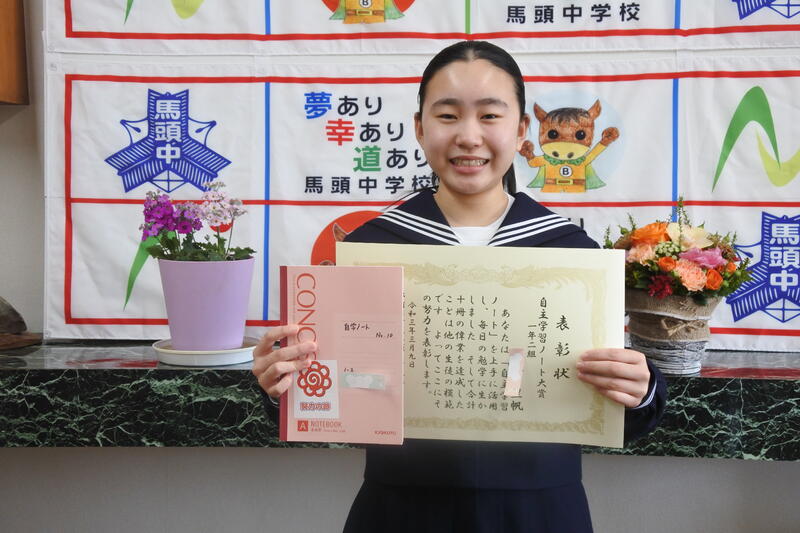 馬頭中学校
馬頭中
夢あり
幸あり
道あり
馬頭中学校
B
馬頭中
自学ノート
No.10
1-2
努力の跡
A NOTEBOOK
KYOKUTO
表彰状
自主学習ノート大賞
一年二組
帆
あなたは「自主学習
ノート」を上手に活用
し、毎日の勉学に生か
しました。そして合計
十冊の偉業を達成した
ことは他の生徒の模範
です。よってここにそ
の努力を表彰します。
令和三年三月九日